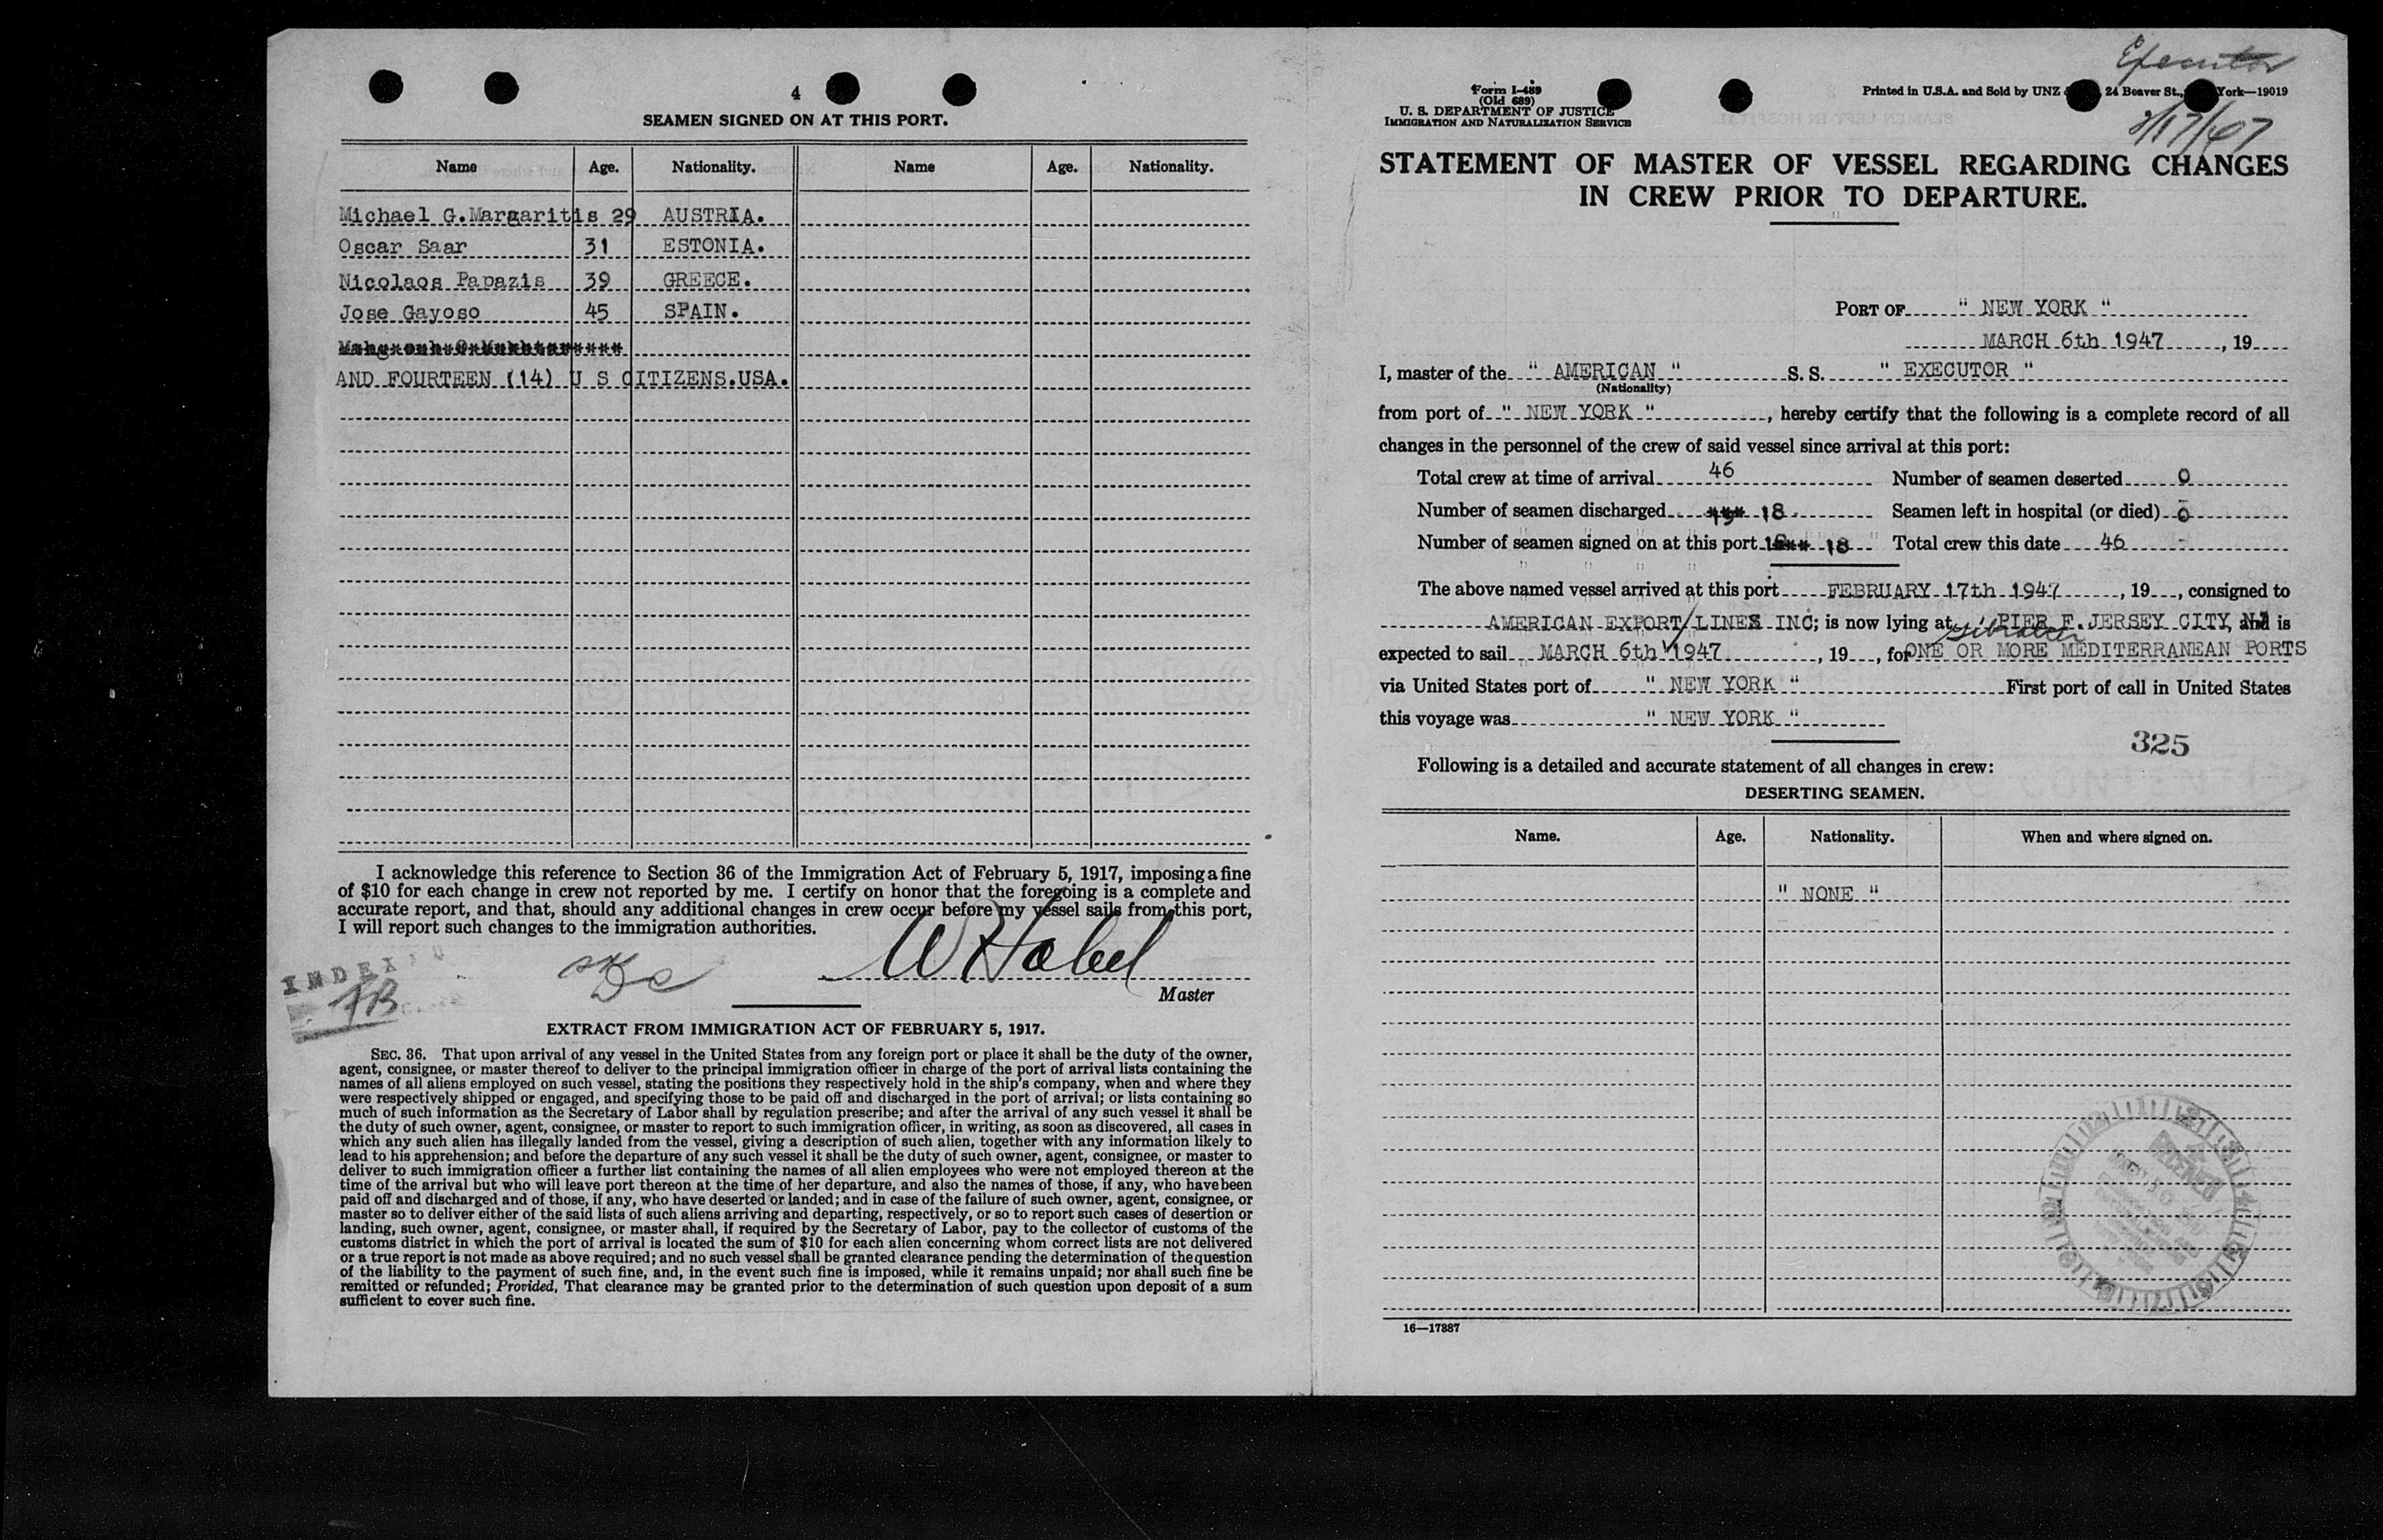 4
SEAMEN SIGNED ON AT THIS PORT.
Name Age. Nationality. Name Age. Nationality.
Michael G.Margaritis 29 AUSTRIA.
Oscar Saar 31 ESTONIA.
Nicolaos Papazis 39 GREECE.
Jose Gayoso 45 SPAIN.
AND FOURTEEN (14) U S CITIZENS.USA.
I acknowledge this reference to Section 36 of the Immigration Act of February 5, 1917, imposing a fine
of $10 for each change in crew not reported by me. I certify on honor that the foregoing is a complete and
accurate report, and that, should any additional changes in crew occur before my vessel sails from this port,
I will report such changes to the immigration authorities.
INDEX
FB
Master
EXTRACT FROM IMMIGRATION ACT OF FEBRUARY 5, 1917.
SEC. 36. That upon arrival of any vessel in the United States from any foreign port or place it shall be the duty of the owner,
agent, consignee, or master thereof to deliver to the principal immigration officer in charge of the port of arrival lists containing the
names of all aliens employed on such vessel, stating the positions they respectively hold in the ship's company, when and where they
were respectively shipped or engaged, and specifying those to be paid off and discharged in the port of arrival; or lists containing so
much of such information as the Secretary of Labor shall by regulation prescribe; and after the arrival of any such vessel it shall be
the duty of such owner, agent, consignee, or master to report to such immigration officer, in writing, as soon as discovered, all cases in
which any such alien has illegally landed from the vessel, giving a description of such alien, together with any information likely to
lead to his apprehension; and before the departure of any such vessel it shall be the duty of such owner, agent, consignee, or master to
deliver to such immigration officer a further list containing the names of all alien employees who were not employed thereon at the
time of the arrival but who will leave port thereon at the time of her departure, and also the names of those, if any, who have been
paid off and discharged and of those, if any, who have deserted or landed; and in case of the failure of such owner, agent, consignee, or
master so to deliver either of the said lists of such aliens arriving and departing, respectively, or so to report such cases of desertion or
landing, such owner, agent, consignee, or master shall, if required by the Secretary of Labor, pay to the collector of customs of the
customs district in which the port of arrival is located the sum of $10 for each alien concerning whom correct lists are not delivered
or a true report is not made as above required; and no such vessel shall be granted clearance pending the determination of the question
of the liability to the payment of such fine, and, in the event such fine is imposed, while it remains unpaid; nor shall such fine be
remitted or refunded; Provided, That clearance may be granted prior to the determination of such question upon deposit of a sum
sufficient to cover such fine.
Executor
Form I-489
(Old 689)
U. S. DEPARTMENT OF JUSTICE
IMMIGRATION AND NATURALIZATION SERVICE
Printed in U.S.A. and Sold by UNZ 24 Beaver St., York—19019
2/17/47
STATEMENT OF MASTER OF VESSEL REGARDING CHANGES
IN CREW PRIOR TO DEPARTURE.
PORT OF " NEW YORK "
MARCH 6th 1947, 19
I, master of the " AMERICAN " S. S. " EXECUTOR "
(Nationality)
from port of " NEW YORK ", hereby certify that the following is a complete record of all
changes in the personnel of the crew of said vessel since arrival at this port:
Total crew at time of arrival 46 Number of seamen deserted 0
Number of seamen discharged 18 Seamen left in hospital (or died) 0
Number of seamen signed on at this port 18 Total crew this date 46
The above named vessel arrived at this port FEBRUARY 17th 1947, 19, consigned to
AMERICAN EXPORT LINES INC; is now lying at PIER F. JERSEY CITY, NJ and is
Gibraltar
expected to sail MARCH 6th 1947, 19, for ONE OR MORE MEDITERRANEAN PORTS
via United States port of " NEW YORK " First port of call in United States
this voyage was " NEW YORK "
325
Following is a detailed and accurate statement of all changes in crew:
DESERTING SEAMEN.
Name. Age. Nationality. When and where signed on.
" NONE "
RECEIVED
16—17887